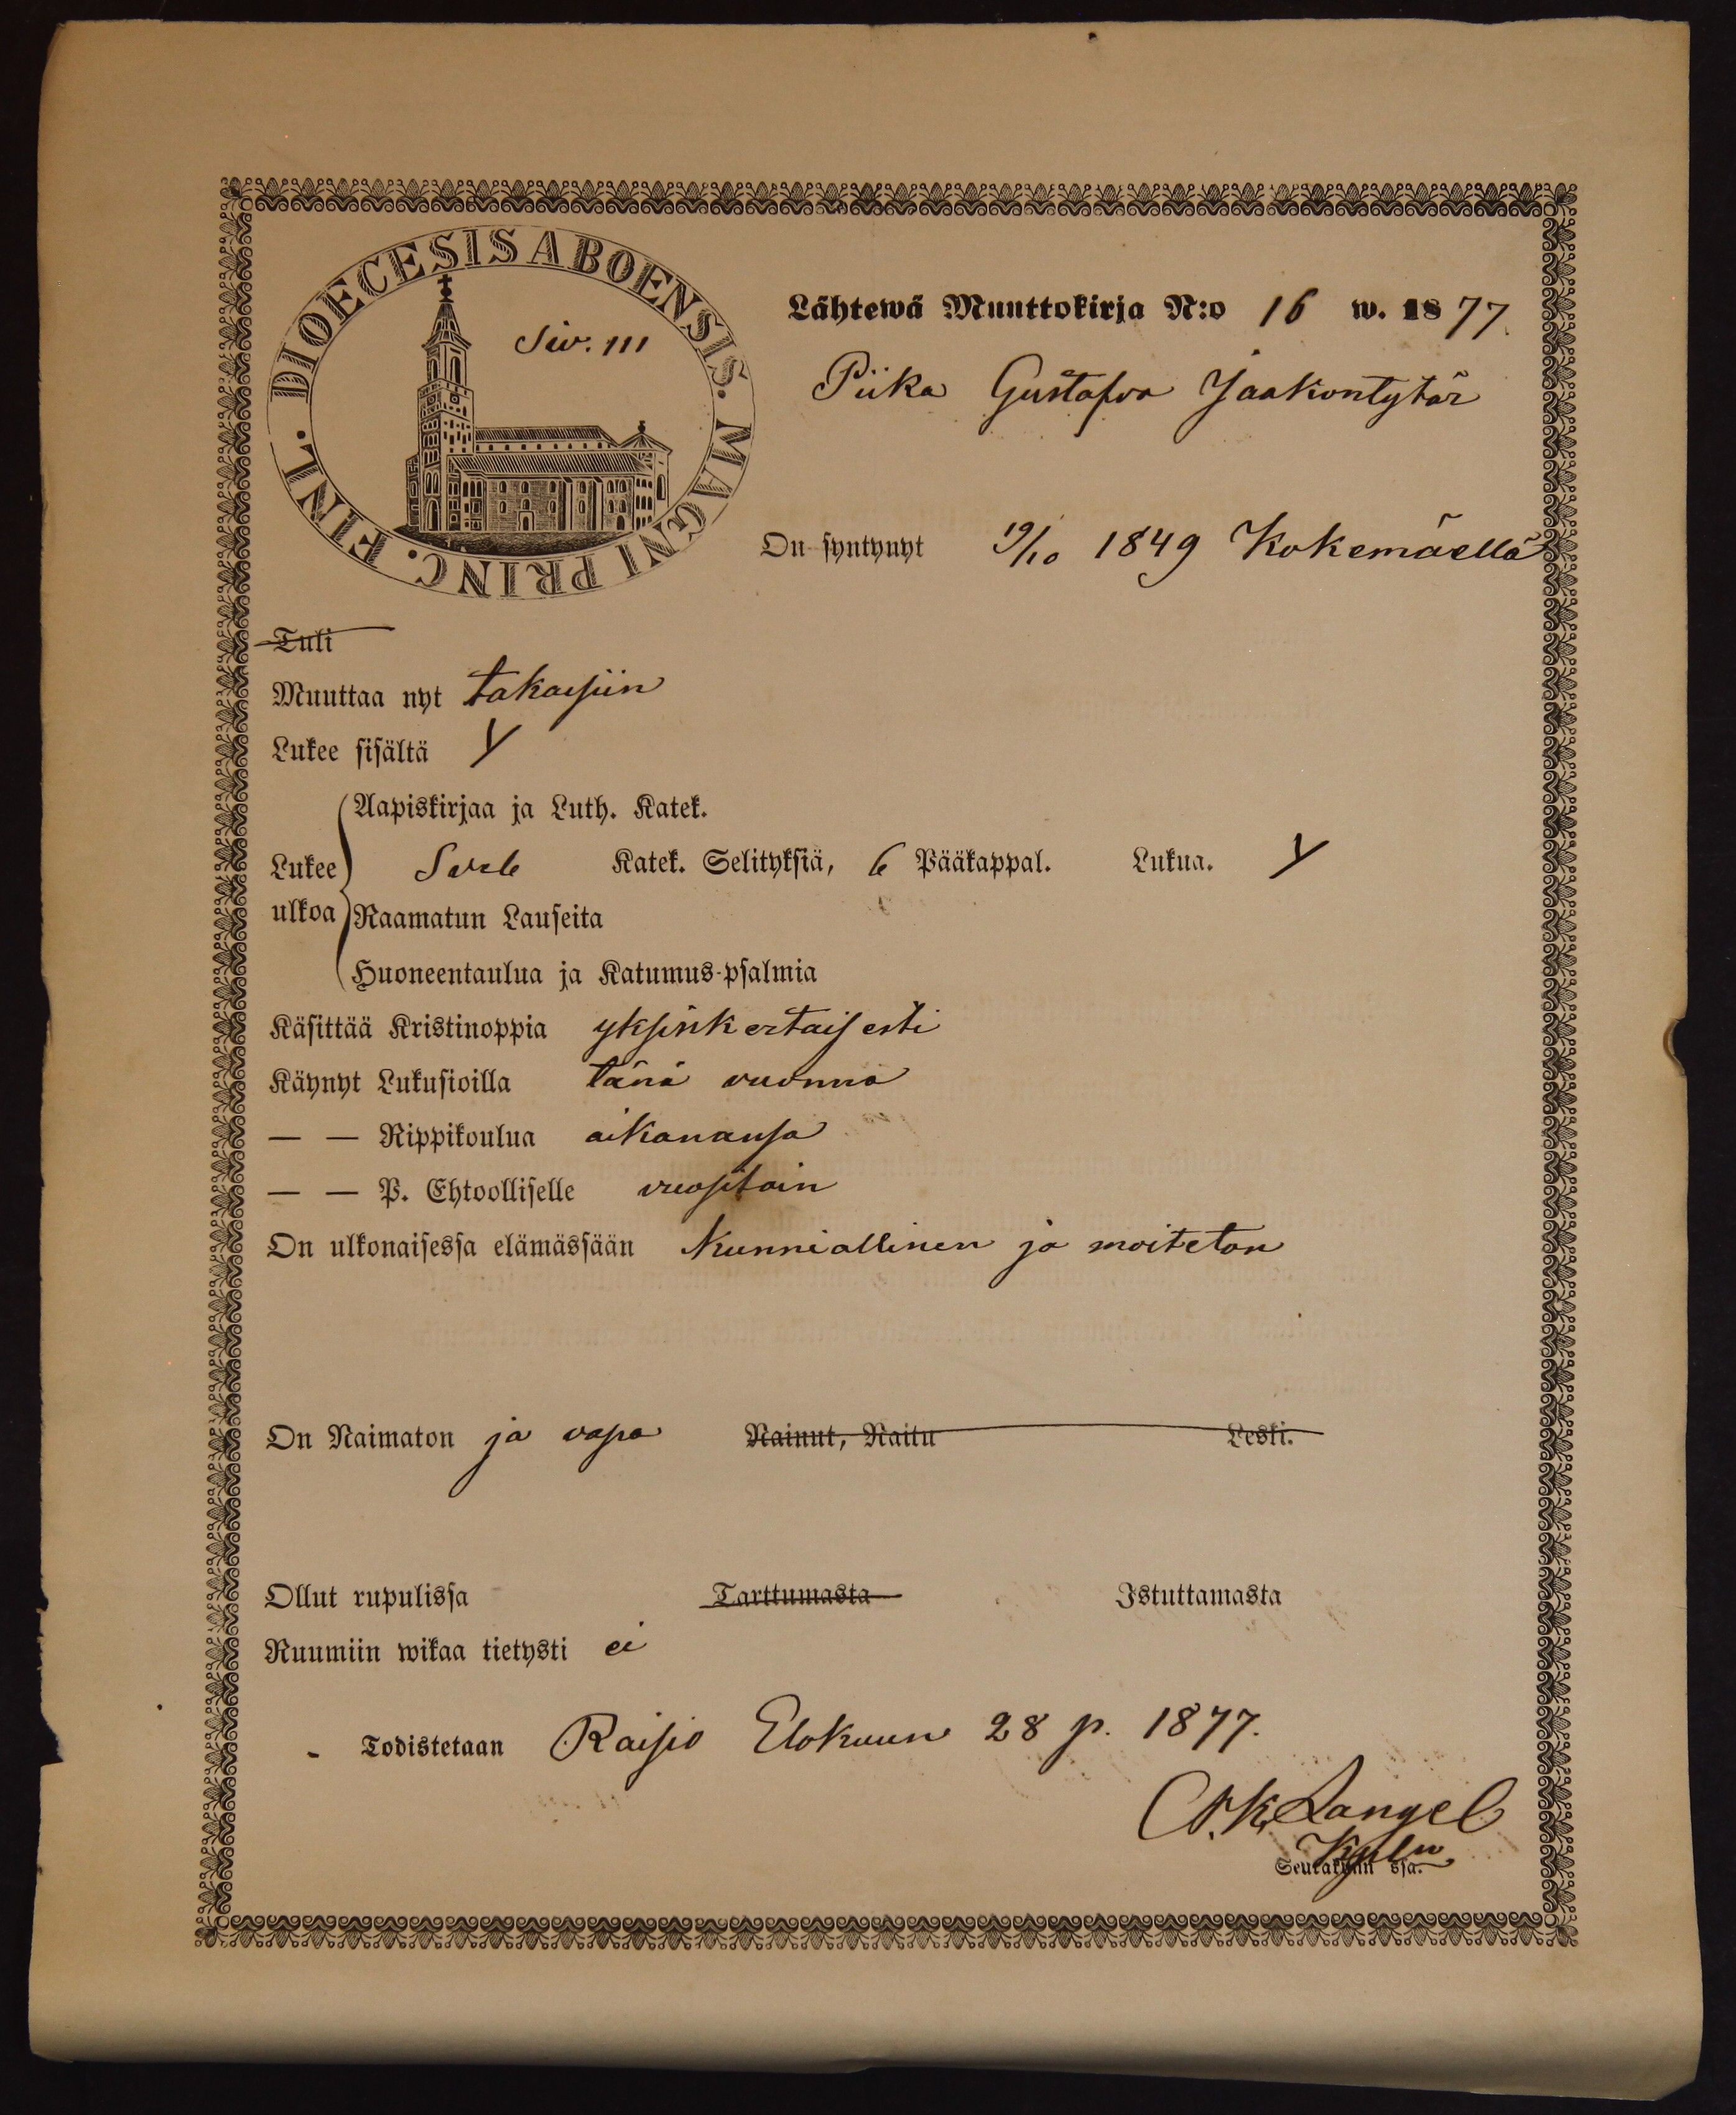 DIOECESIS ABOENSIS. MAGNI PRINC. FINL.
Siv. 111
Lähtewä Muuttokirja N:o 16 w. 1877.
Piika Gustafva Jaakontytär
On syntynyt 19/10 1849 Kokemäellä
Tuli
Muuttaa nyt takaisin
Lukee sisältä Y
Aapiskirjaa ja Luth. Katek.
Lukee Katek. Selityksiä, 6 Pääkappal. Lukua. Y
ulkoa Raamatun Lauseita
Huoneentaulua ja Katumus-psalmia
Käsittää Kristinoppia yksinkertaisesti
Käynyt Lukusioilla tänä vuonna
— — Rippikoulua aikanansa
— — P. Ehtoolliselle vuositain
On ulkonaisessa elämässään kunniallinen ja moiteton
On Naimaton ja vapa Nainut, Naitu Leski.
Ollut rupulissa Tarttumasta Istuttamasta
Ruumiin wikaa tietysti ei
Todistetaan Raisio Elokuun 28 p. 1877.
K. Langel
Seurakunn ssa.